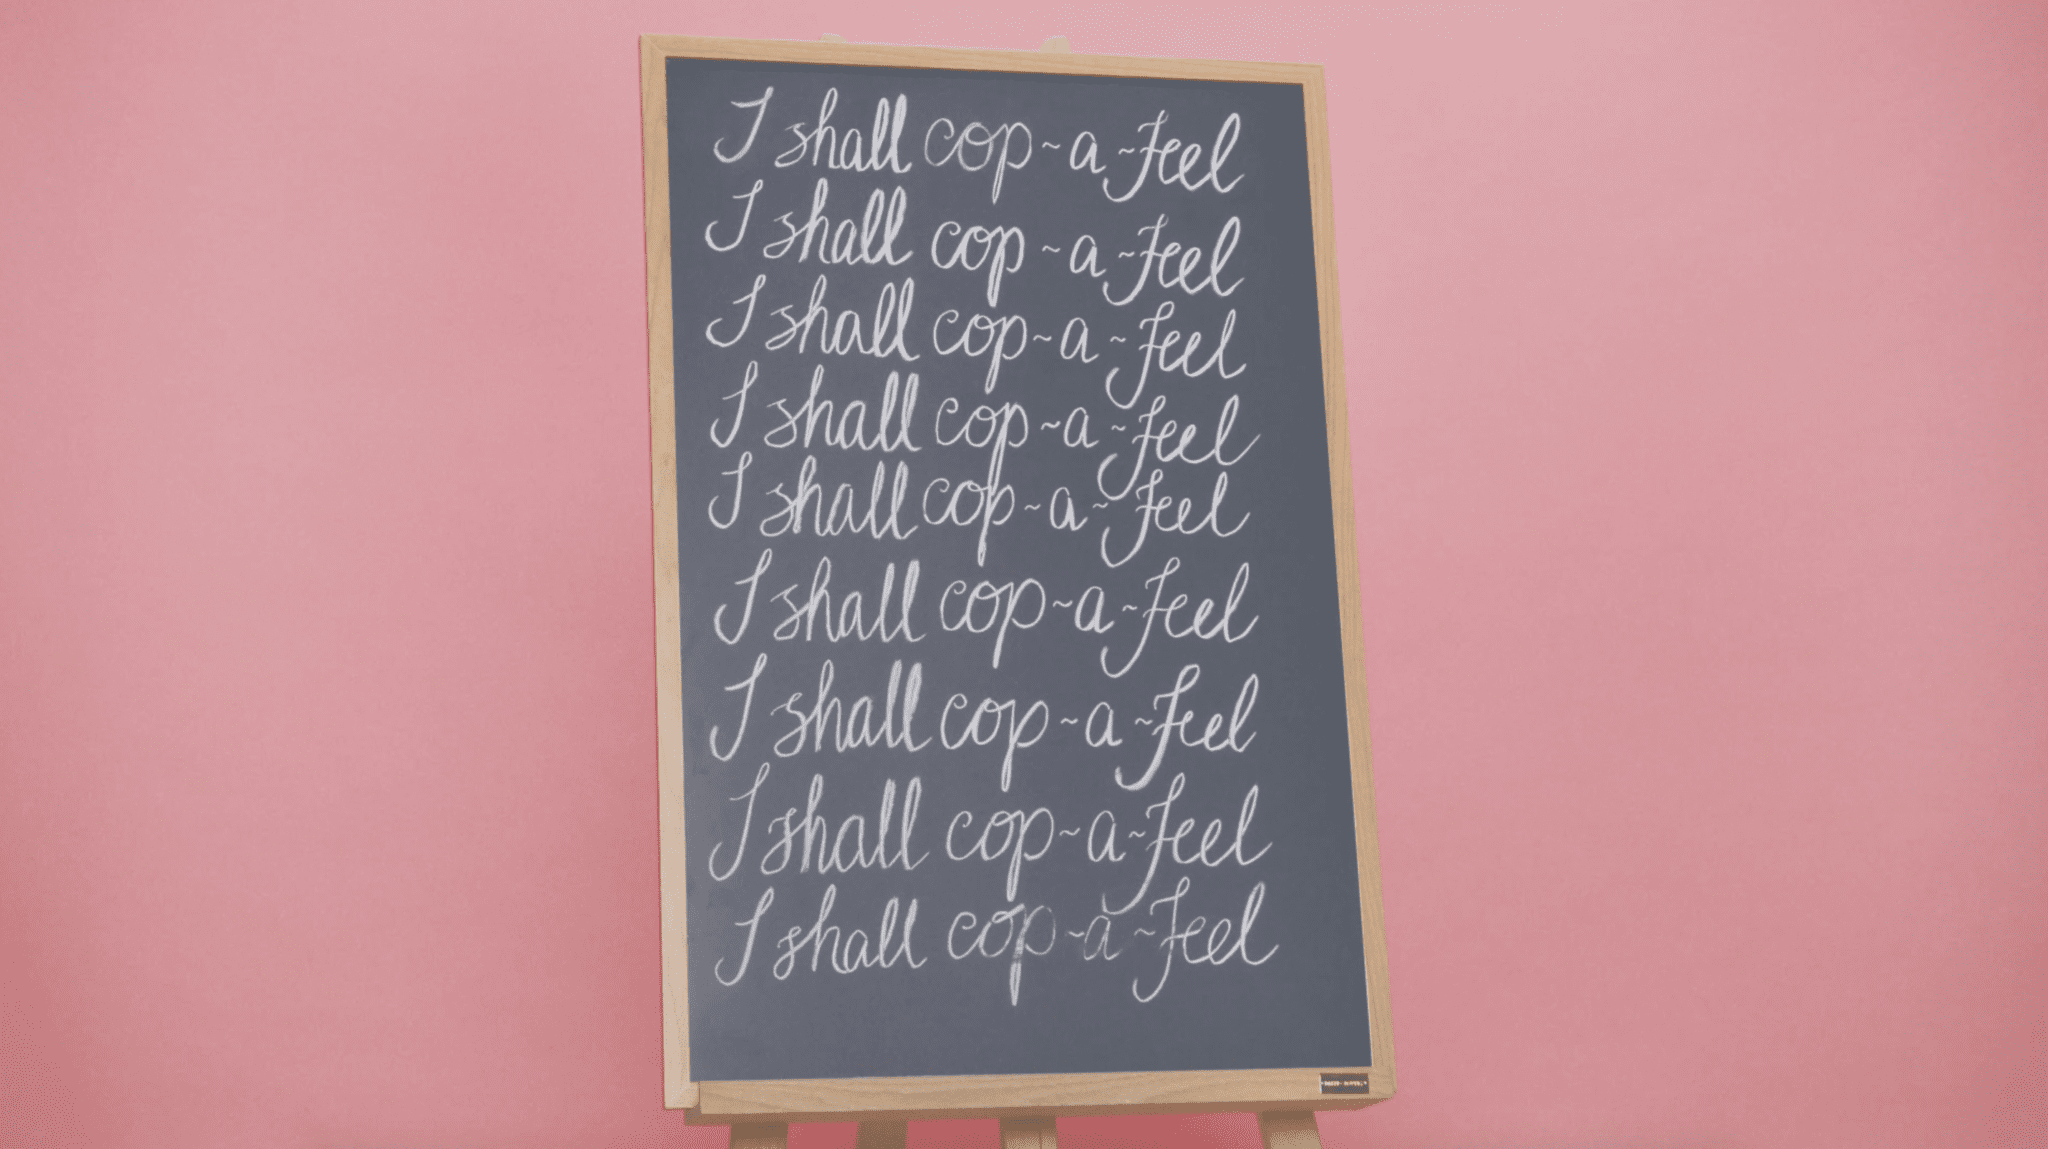 I shall cop~a~feel
I shall cop~a~feel
I shall cop~a~feel
I shall cop~a~feel
I shall cop~a~feel
I shall cop~a~feel
I shall cop~a~feel
I shall cop~a~feel
I shall cop~a~feel